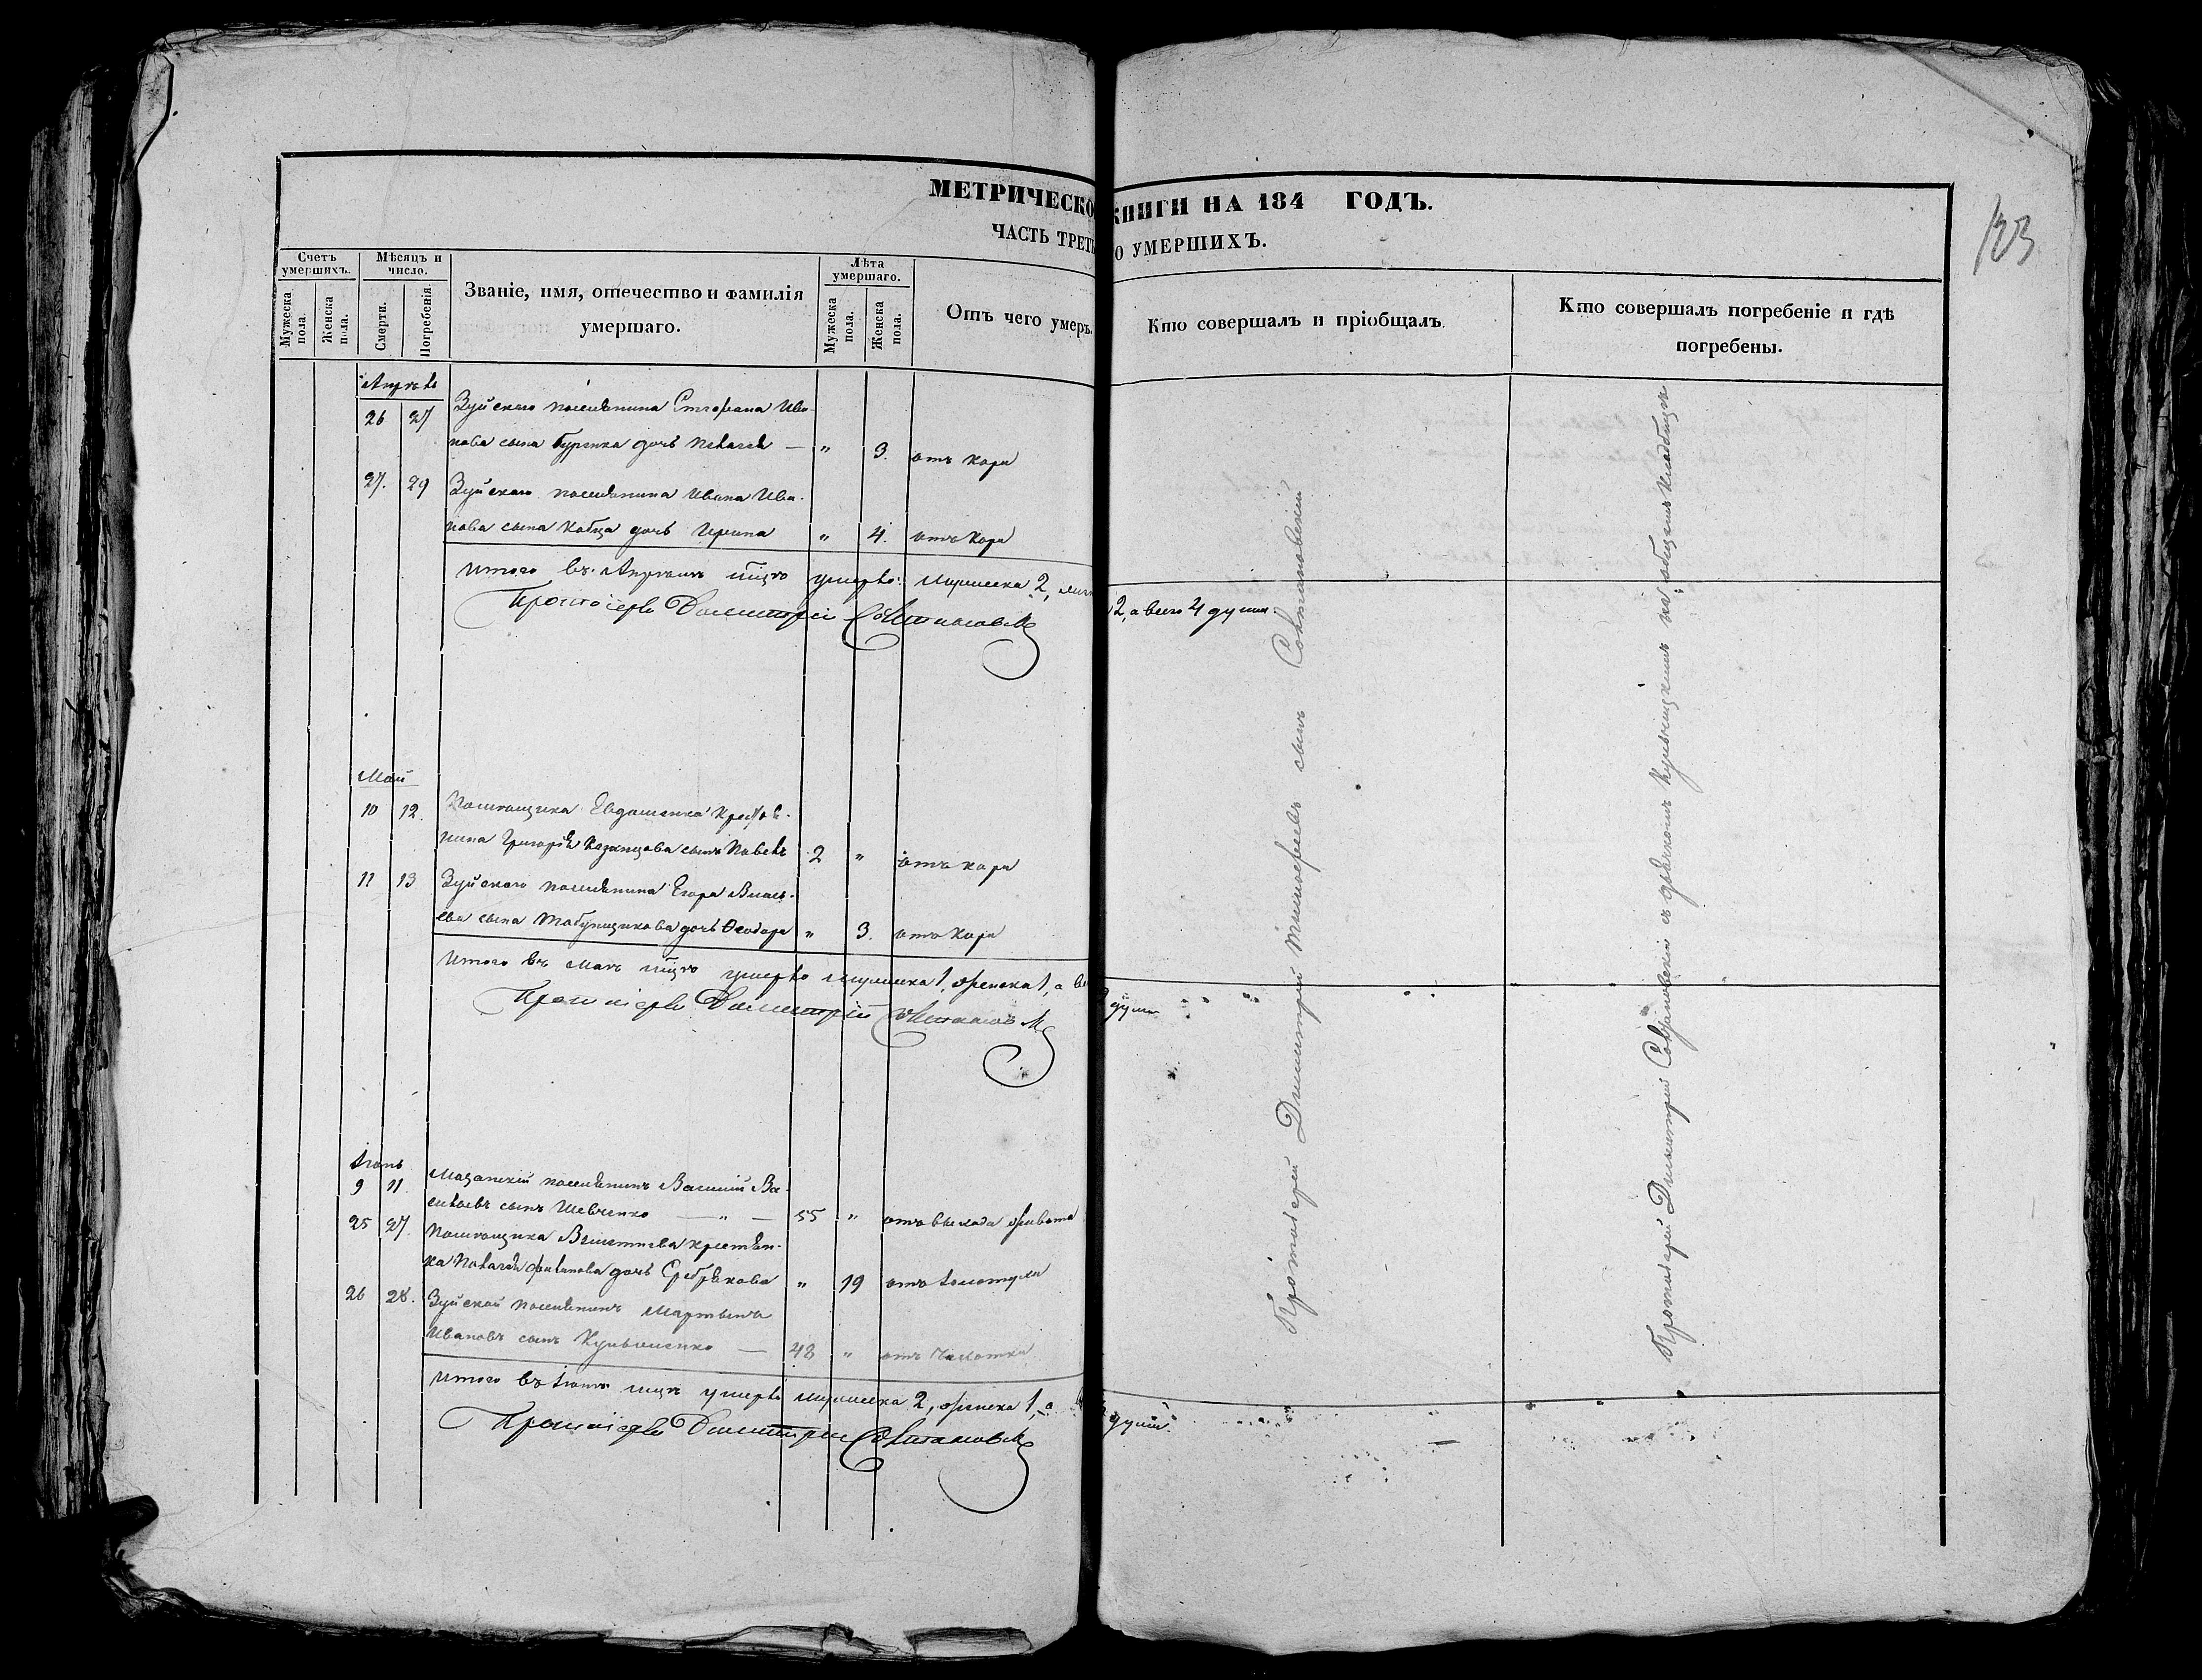 МЕТРИЧЕСКО КНИГИ НА 184 ГОДЪ.
ЧАСТЬ ТРЕТЬ О УМЕРШИХЪ.
123
Счетъ умершихъ.
Мужеска пола.
Женска пола.
Мѣсяцъ и число.
Смерти.
Погребенія.
Званіе, имя, отечество и фамилія
умершаго.
Лѣта умершаго.
Мужеска пола.
Женска пола.
Отъ чего умеръ.
Кто совершалъ и пріобщалъ
Кто совершалъ погребеніе и гдѣ
погребены.
Апрѣль
26 27 Зуйскаго поселянина Стефана Ива-
нова сына дочь Пелагея — " 3. отъ кори
27. 29 Зуйскаго поселянина Ивана Ива-
нова сына Кобца дочь Ирина " 4. отъ кори
Итого въ Апрѣлѣ мцѣ умерло: мужеска 2, 2, а всего 4 души.
Протоіерей Димитрій Койтановскій
Май
10 12. Помѣщика Евдошенка
нина Григорія Казанцова сынъ Павелъ 2 " отъ кори
11 13 Зуйскаго поселянина Егора Василь-
ева сына Табунщикова дочь Ѳеодора " 3. отъ кори
Итого въ Маѣ мцѣ умерло мужеска 1, женска 1, а души
Протоіерей Димитрій Койтановскій
Іюнь
9 11. Мазанскій поселянинъ Василій Ва-
сильевъ сынъ Шевченко — " — 55 " отъ живота
25 27. Помѣщика крестьян-
ка Пелагея дочь Сребрякова " 19 отъ
26 28. Зуйской поселянинъ Мартынъ
Ивановъ сынъ — 48 " отъ чахотки
Итого въ Іюнѣ мцѣ умерло мужеска 2, женска 1, а души.
Протоіерей Димитрій Койтановскій
Протоіерей Димитрій Тимофеевъ сынъ Койтановскій
Протоіерей Димитрій Койтановскій съ дьячкомъ на общемъ кладбищѣ